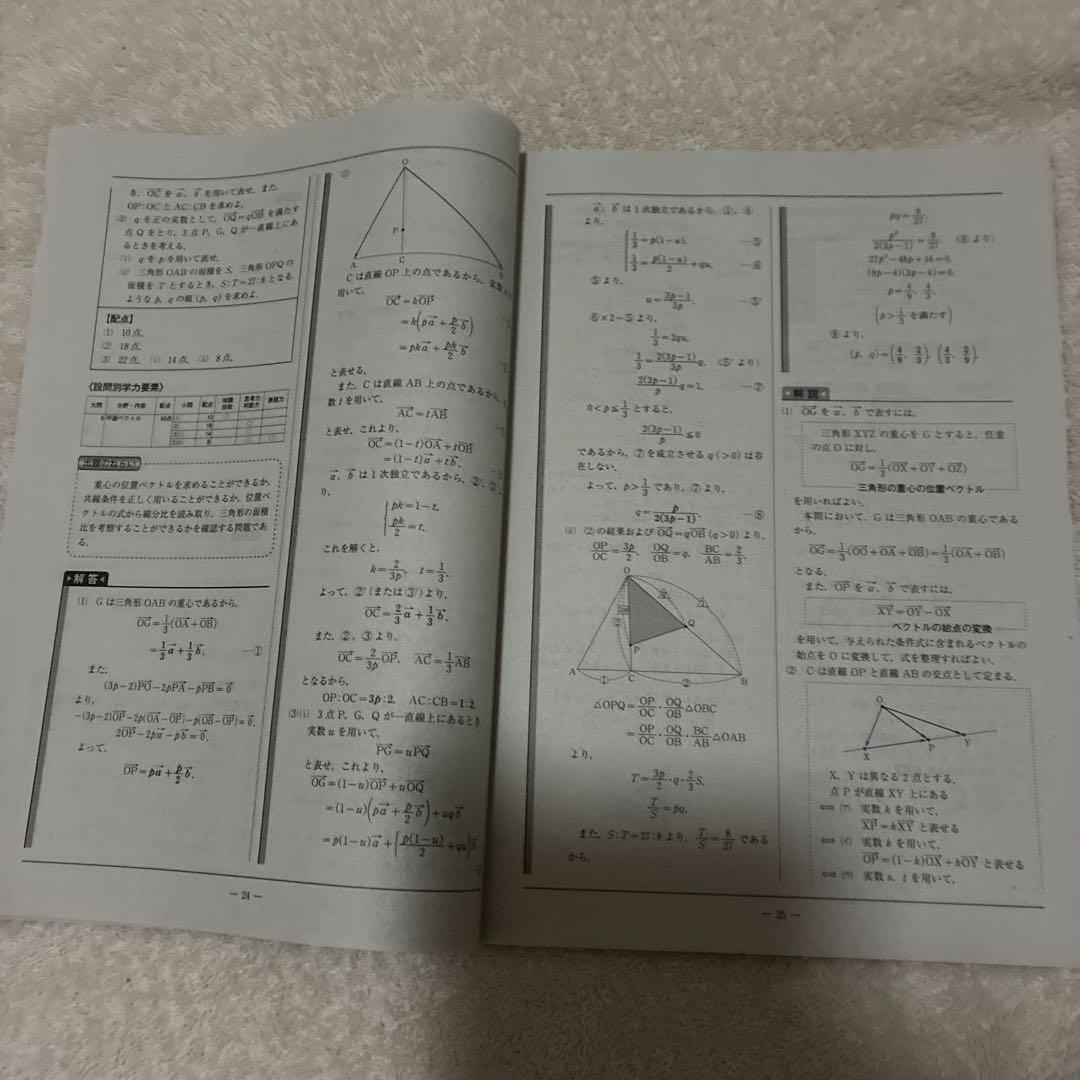 き，OC を a，b を用いて表せ．また，
OP：OC と AC：CB を求めよ．
(3) q を正の実数として，OQ=qOB を満たす
点 Q をとり，3 点 P，G，Q が一直線上にあ
るときを考える．
(i) q を p を用いて表せ．
(ii) 三角形 OAB の面積を S，三角形 OPQ の
面積を T とするとき，S：T=27：8 となる
ような p，q の組 (p，q) を求めよ．
【配点】
(1) 10 点．
(2) 18 点．
(3) 22 点． (i) 14 点． (ii) 8 点．
《設問別学力要素》
大問 分野・内容 配点 小問 配点 知識技能 思考力判断力 表現力
6 平面ベクトル 50点 (1) 10 ○
(2) 18 ○
(3)(i) 14 ○
(3)(ii) 8 ○
出題のねらい
重心の位置ベクトルを求めることができるか，
共線条件を正しく用いることができるか，位置ベ
クトルの式から線分比を読み取り，三角形の面積
比を考察することができるかを確認する問題であ
る．
解答
(1) G は三角形 OAB の重心であるから，
OG=1/3(OA+OB)
=1/3a+1/3b． …①
また，
(3p−2)PO−2pPA−pPB=0
より，
−(3p−2)OP−2p(OA−OP)−p(OB−OP)=0．
2OP−2pa−pb=0．
よって，
OP=pa+p/2b．
(2)
O
P
A
C
C は直線 OP 上の点であるから，実数
用いて，
OC=kOP
=k(pa+p/2b)
=pka+pk/2b
と表せる．
また，C は直線 AB 上の点であるから，
数 t を用いて，
AC=tAB
と表せ，これより，
OC=(1−t)OA+tOB
=(1−t)a+tb．
a，b は 1 次独立であるから，②′，
り，
pk=1−t，
pk/2=t．
これを解くと，
k=2/3p， t=1/3．
よって，②′(または ③′)より，
OC=2/3a+1/3b．
また，②，③ より，
OC=2/3pOP， AC=1/3AB
となるから，
OP：OC=3p：2， AC：CB=1：2．
(3)(i) 3 点 P，G，Q が一直線上にあるとき
実数 u を用いて，
PG=uPQ
と表せ，これより，
OG=(1−u)OP+uOQ
=(1−u)(pa+p/2b)+uqb
=p(1−u)a+{p(1−u)/2+qu}b
― 24 ―
a，b は 1 次独立であるから，①，④
より，
1/3=p(1−u)， …⑤
1/3=p(1−u)/2+qu． …⑥
⑤ より，
u=3p−1/3p． …⑤′
⑥×2−⑤ より，
1/3=2qu．
1/3=2(3p−1)/3p q． (⑤′ より)
2(3p−1)/p q=1． …⑦
0<p≦1/3 とすると，
2(3p−1)/p≦0
であるから，⑦ を成立させる q (>0) は存
在しない．
よって，p>1/3 であり，⑦ より，
q=p/2(3p−1)． …⑧
(ii) (2) の結果および OQ=qOB (q>0) より，
OP/OC=3p/2， OQ/OB=q， BC/AB=2/3．
O
Q
P
A
C
B
① ②
△OPQ=OP/OC・OQ/OB△OBC
=OP/OC・OQ/OB・BC/AB△OAB
より，
T=3p/2・q・2/3S．
T/S=pq．
また，S：T=27：8 より，T/S=8/27 である
から，
pq=8/27．
p²/2(3p−1)=8/27． (⑧ より)
27p²−48p+16=0．
(9p−4)(3p−4)=0．
p=4/9，4/3．
(p>1/3 を満たす)
⑧ より，
(p，q)=(4/9，2/3)，(4/3，2/9)．
解説
(1) OG を a，b で表すには，
三角形 XYZ の重心を G とすると，任意
の点 O に対し，
OG=1/3(OX+OY+OZ)
三角形の重心の位置ベクトル
を用いればよい．
本問において，G は三角形 OAB の重心である
から，
OG=1/3(OO+OA+OB)=1/3(OA+OB)
となる．
また，OP を a，b で表すには，
XY=OY−OX
ベクトルの始点の変換
を用いて，与えられた条件式に含まれるベクトルの
始点を O に変換して，式を整理すればよい．
(2) C は直線 OP と直線 AB の交点として定まる．
O
X
P
Y
X，Y は異なる 2 点とする．
点 P が直線 XY 上にある
⟺ (ア) 実数 k を用いて，
XP=kXY と表せる
⟺ (イ) 実数 k を用いて，
OP=(1−k)OX+kOY と表せる
⟺ (ウ) 実数 s，t を用いて，
― 25 ―